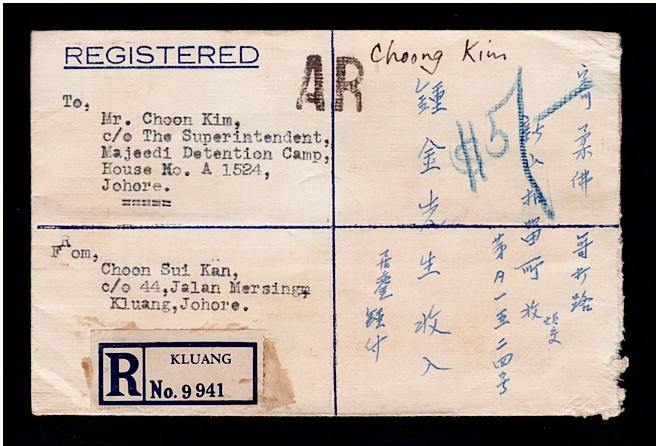 REGISTERED
AR
Choong Kim
To,
Mr. Choon Kim,
c/o The Superintendent,
Majeedi Detention Camp,
House No. A 1524,
Johore.
=====
From,
Choon Sui Kan,
c/o 44,Jalan Mersing,
Kluang,Johore.
R
KLUANG
No. 9941
$5/
寄柔佛 哥打路
新山扣留所 收
第A一五二四号
鍾金先生收入
居鑾 鍾付